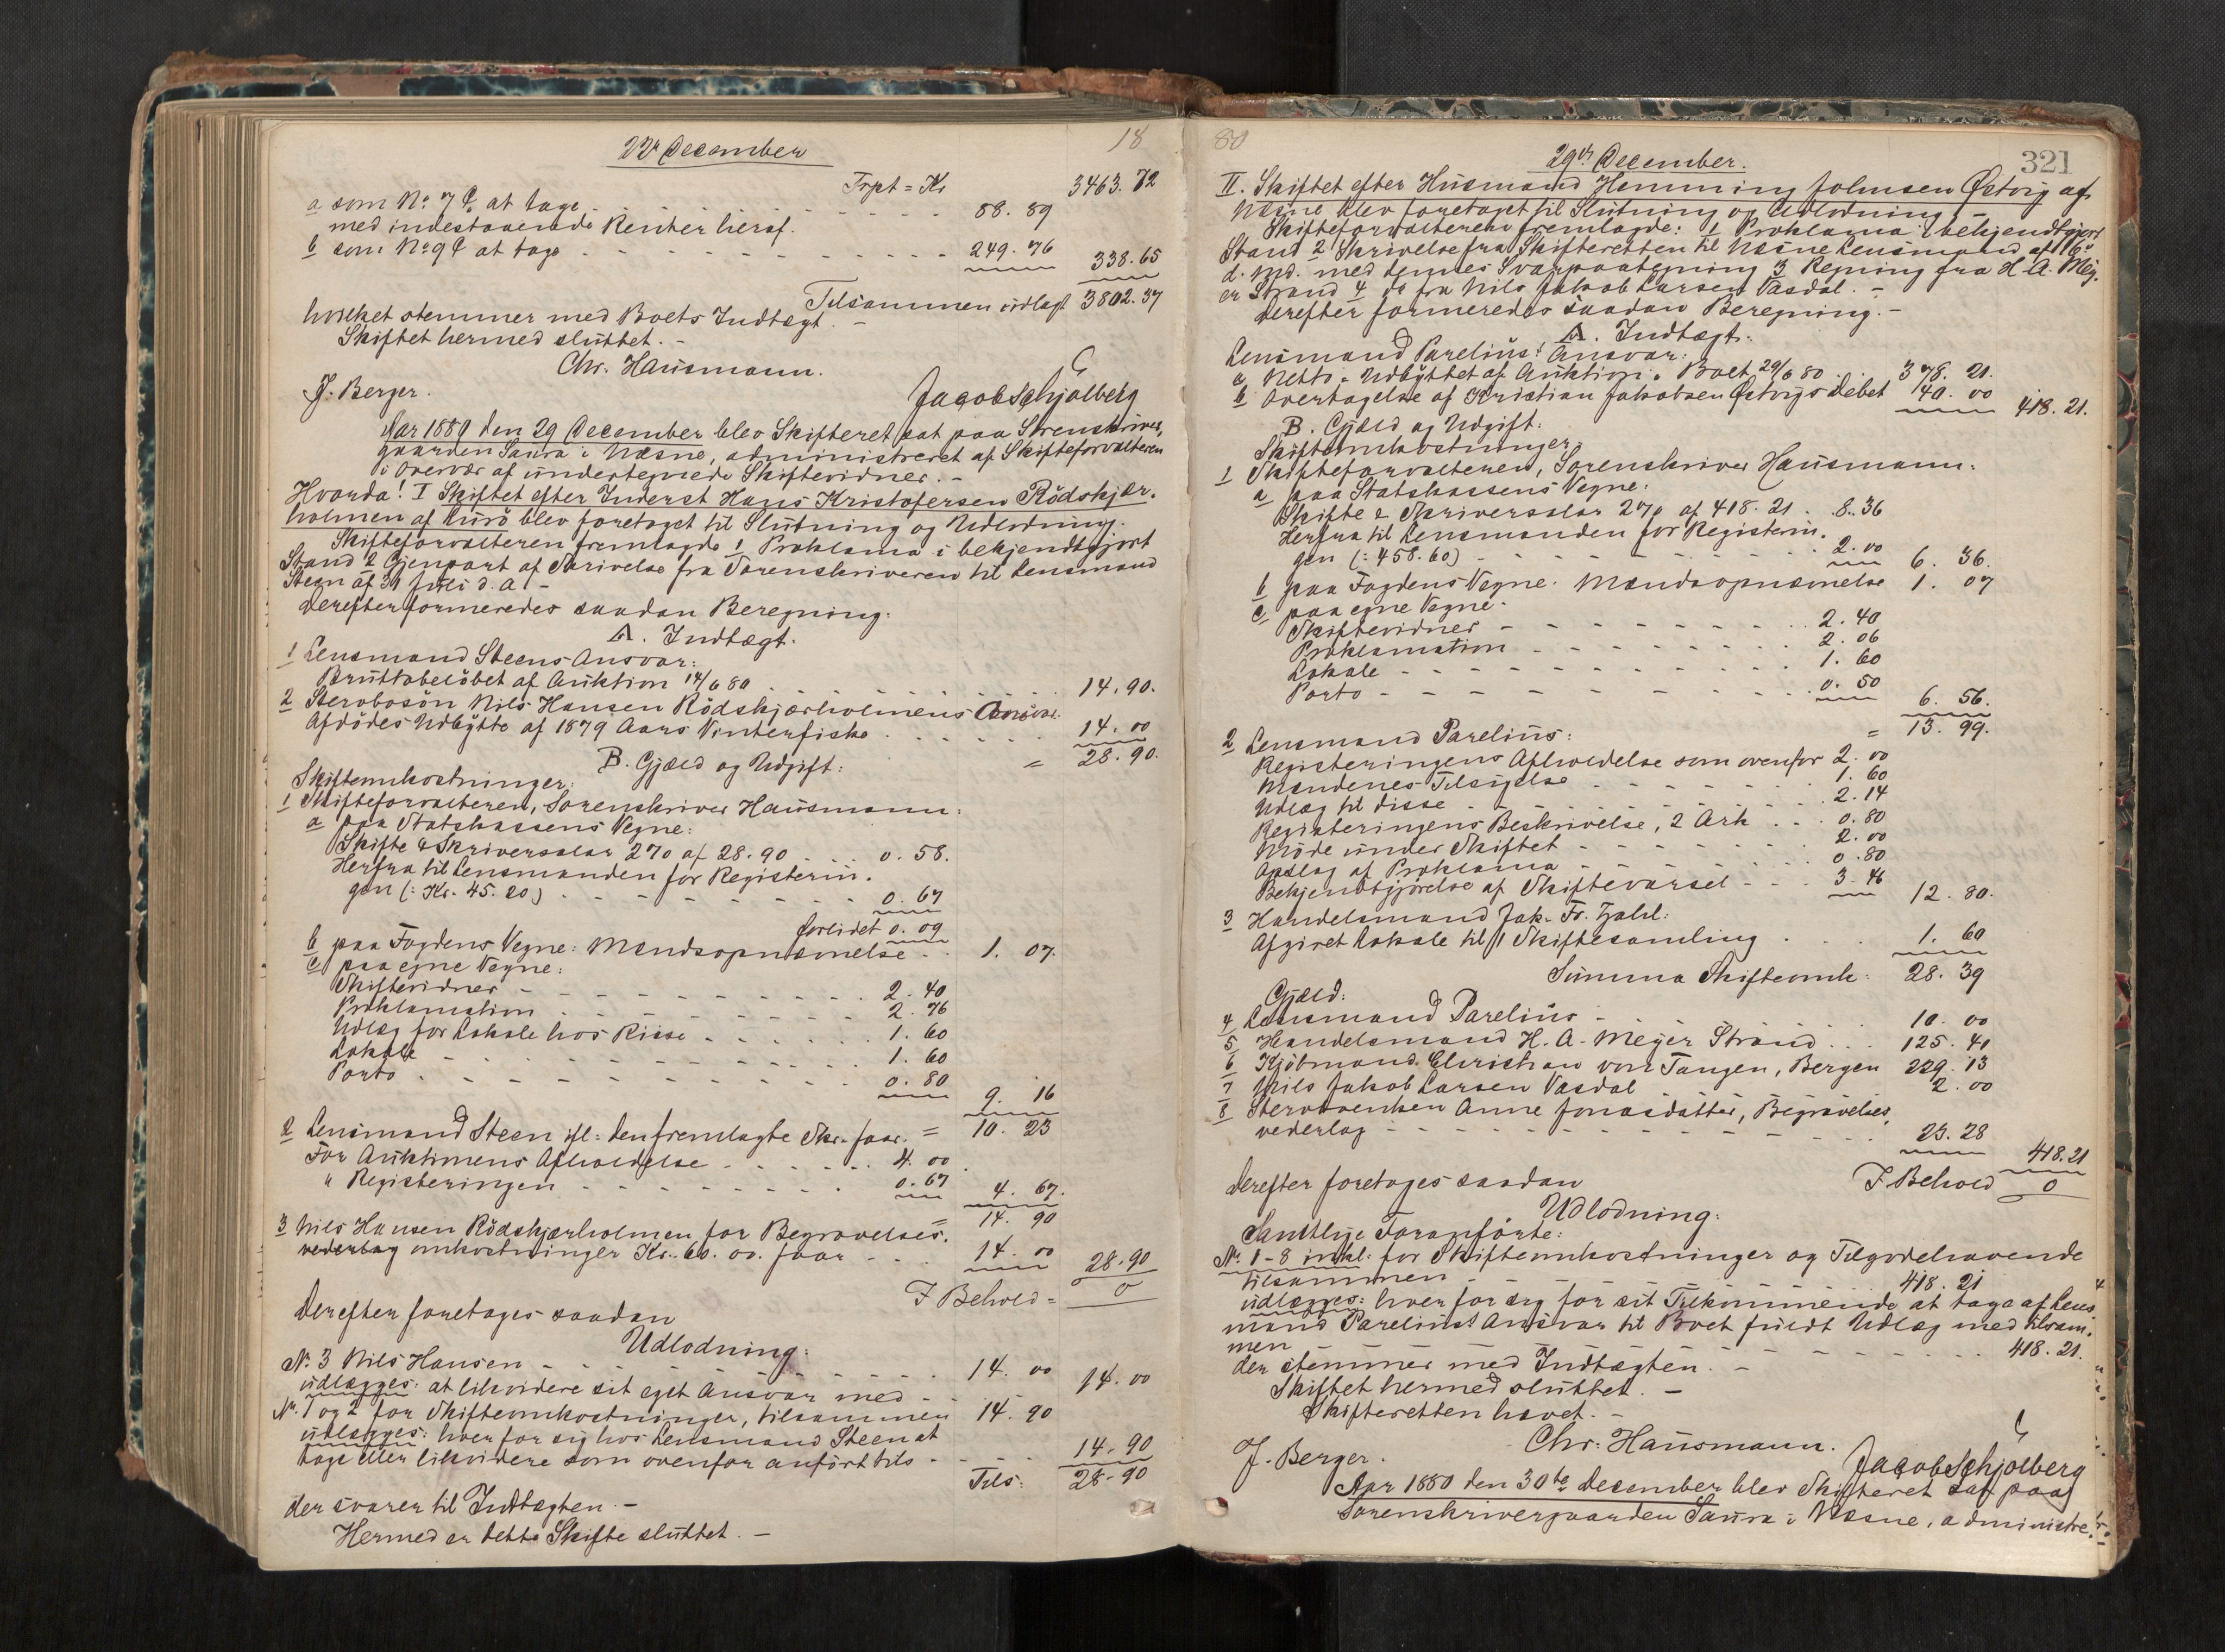 22de December
18
Trpt = Kr 3463.72
a som No. 7 C, at tage - - - - - 88.89
med indestaaende Renter heraf.
b som No 9 C at tage - - - - - 249.76 338.65
Tilsammen udlagt 3802.37
hvilket stemmer med Boets Indtægt. -
Skiftet hermed sluttet. -
Chr. Hausmann.
J. Berger. Jacob Schjølberg
Aar 1880 den 29 December blev Skifteret sat paa Sorenskriver-
gaarden Saura i Næsne, administreret af Skifteforvalteren
i Overvær af undertegnede Skiftevidner. -
Hvorda! I Skiftet efter Inderst Hans Kristofersen Rödskjær-
holmen af Lurö blev foretaget til Slutning og Udlodning.
Skifteforvalteren fremlagde 1 Proklama i bekjendtgjort
Stand 2 Gjenpart af Skrivelse fra Sorenskriveren til Lensmand
Steen af 31 Juli d. A. -
Derefter formeredes saadan Beregning:
A. Indtægt.
1 Lensmand Steens Ansvar:
Bruttobelöbet af Auktion 14/6 80 . . . . . 14.90.
2 Stervbosön Nils Hansen Rödskjærholmens Ansvar.
Afdödes Udbytte af 1879 Aars Vinterfiske . . . . . 14.00
= 28.90.
B. Gjæld og Udgift:
Skifteomkostninger:
1 Skifteforvalteren, Sorenskriver Hausmann:
a paa Statskassens Vegne:
Skifte & Skriversalær 2% af 28.90 . . . 0.58.
Herfra til Lensmanden for Registerin-
gen (: Kr. 45.20) - - - - - 0.67
forlidet 0.09
b paa Fogdens Vegne: Mændsopnævnelse . . 1.07.
c paa egne Vegne:
Skiftevidner - - - - - 2.40
Proklamation - - - - - 2.76
Udlæg for Lokale hos Risse . . . . . 1.60
Lokale - - - - - 1.60
Porto - - - - - 0.80
9.16
= 10.23
2 Lensmand Steen ifl: den fremlagte Skr. faar.
For Auktionens Afholdelse - - - - - 4.00
" Registeringen - - - - - 0.67 4.67.
= 14.90
3 Nils Hansen Rödskjærholmen for Begravelses-
vederlag omkostninger Kr. 60.00. faar - - 14.00 28.90
I Behold = 0
Derefter foretages saadan
Udlodning:
No. 3 Nils Hansen - - - - - 14.00
udlægges: at likvidere sit eget Ansvar med - - 14.00
No. 1 og 2 for Skifteomkostninger, tilsammen 14.90
udlægges: hver for sig hos Lensmand Steen at
tage eller likvidere som ovenfor anfört tils - - - 14.90
Tils: 28.90
der svarer til Indtægten. -
Hermed er dette Skifte sluttet. -
80
29de December.
321
II. Skiftet efter Husmand Hemming Johnsen Østvig af
Næsne blev foretaget til Slutning og Udlodning. -
Skifteforvalteren fremlagde: 1 Proklama i bekjendtgjort
Stand 2 Skrivelse fra Skifteretten til Næsne Lensmand af 16de
d. Md. med dennes Svarpaategning 3 Regning fra H. A. Mey-
er Strand 4 do fra Nils Jakob Larsen Vasdal. -
Derefter formeredes saadan Beregning. -
A. Indtægt:
Lensmand Parelius' Ansvar:
a Netto-Udbyttet af Auktion i Boet 29/6 80 . . 378.21.
b Overtagelse af Kristian Jakobsen Østvigs Debet 40.00 418.21.
B. Gjæld og Udgift:
Skifteomkostninger.
1 Skifteforvalteren, Sorenskriver Hausmann:
a paa Statskassens Vegne:
Skifte & Skriversalær 2% af 418.21 . 8.36
Herfra til Lensmanden for Registerin-
gen (: 458.60) - - - - - 2.00 6.36.
b paa Fogdens Vegne: Mændsopnævnelse 1.07
c paa egne Vegne:
Skiftevidner - - - - - 2.40
Proklamation - - - - - 2.06
Lokale - - - - - 1.60
Porto - - - - - 0.50 6.56.
= 13.99.
2 Lensmand Parelius:
Registeringens Afholdelse som ovenfor 2.00
Mændenes Tilsigelse - - - - - 1.60
Udlæg til disse - - - - - 2.14
Registeringens Beskrivelse, 2 Ark . . . 0.80
Möde under Skiftet - - - - - 2.00
Opslag af Proklama - - - - - 0.80
Bekjendtgjörelse af Skiftevarsel - - - 3.46 12.80.
3 Handelsmand Jak. Fr. Zahl:
Afgivet Lokale til 1 Skiftesamling . . . 1.60
Summa Skifteomk. 28.39
Gjæld:
4 Lensmand Parelius - . . . 10.00
5 Handelsmand H. A. Meyer Strand . . . 125.41
6 Kjöbmand Christian von Tangen, Bergen 229.13
7 Nils Jakob Larsen Vasdal . . 2.00
8 Stervboenken Anne Jonasdatter, Begravelses-
vederlag - - - - - 23.28
418.21
I Behold 0
Derefter foretages saadan
Udlodning:
Samtlige Foranförte:
No. 1-8 inkl: for Skifteomkostninger og Tilgodehavende
tilsammen - - - - - 418.21
udlægges: hver for sig for sit Tilkommende at tage af Lens-
mand Parelius's Ansvar til Boet fuldt Udlæg med tilsam-
men - - - - - 418.21.
der stemmer med Indtægten. -
Skiftet hermed sluttet. -
Skifteretten hævet. -
Chr. Hausmann.
J. Berger. Jacob Schjølberg
Aar 1880 den 30te December blev Skifteret sat paa
Sorenskrivergaarden Saura i Næsne, administre-